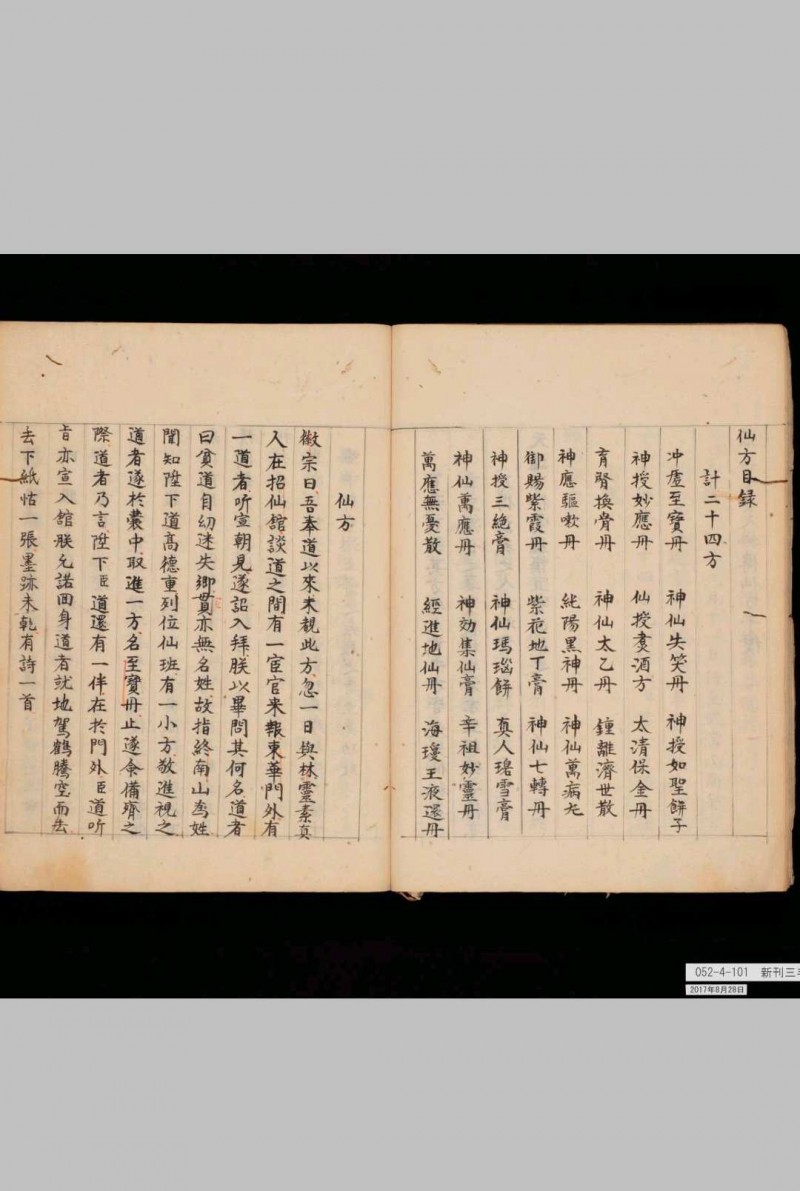 仙方目錄
計二十四方
冲虛至寶丹 神仙失笑丹 神授如聖餅子
神授妙應丹 仙授麦酒方 太清保金丹
育腎換骨丹 神仙太乙丹 鍾離濟世散
神應驅嗽丹 純陽黑神丹 神仙萬病丸
御賜紫霞丹 紫花地丁膏 神仙七轉丹
神授三絶膏 神仙瑪瑙餅 真人碧雪膏
神仙萬應丹 神効集仙膏 辛祖妙靈丹
萬應無憂散 經進地仙丹 海瓊玉液還丹
仙方
徽宗曰吾奉道以來未覩此方忽一日與林靈素真
人在招仙舘談道之間有一宦官来報東華門外有
一道者听宣朝見遂詔入拜朕以畢問其何名道者
曰貧道自幼迷失鄉貫亦無名姓故指終南山為姓
聞知陞下道高德重列位仙班有一小方敬進視之
道者遂於囊中取進一方名至寶丹止遂令備齊之
際道者乃言陞下臣道還有一伴在於門外臣道听
旨亦宣入舘朕允諾回身道者就地駕鶴騰空而去
去下紙帖一張墨跡未乾有詩一首
052-4-101 新刊三
2017年8月28日